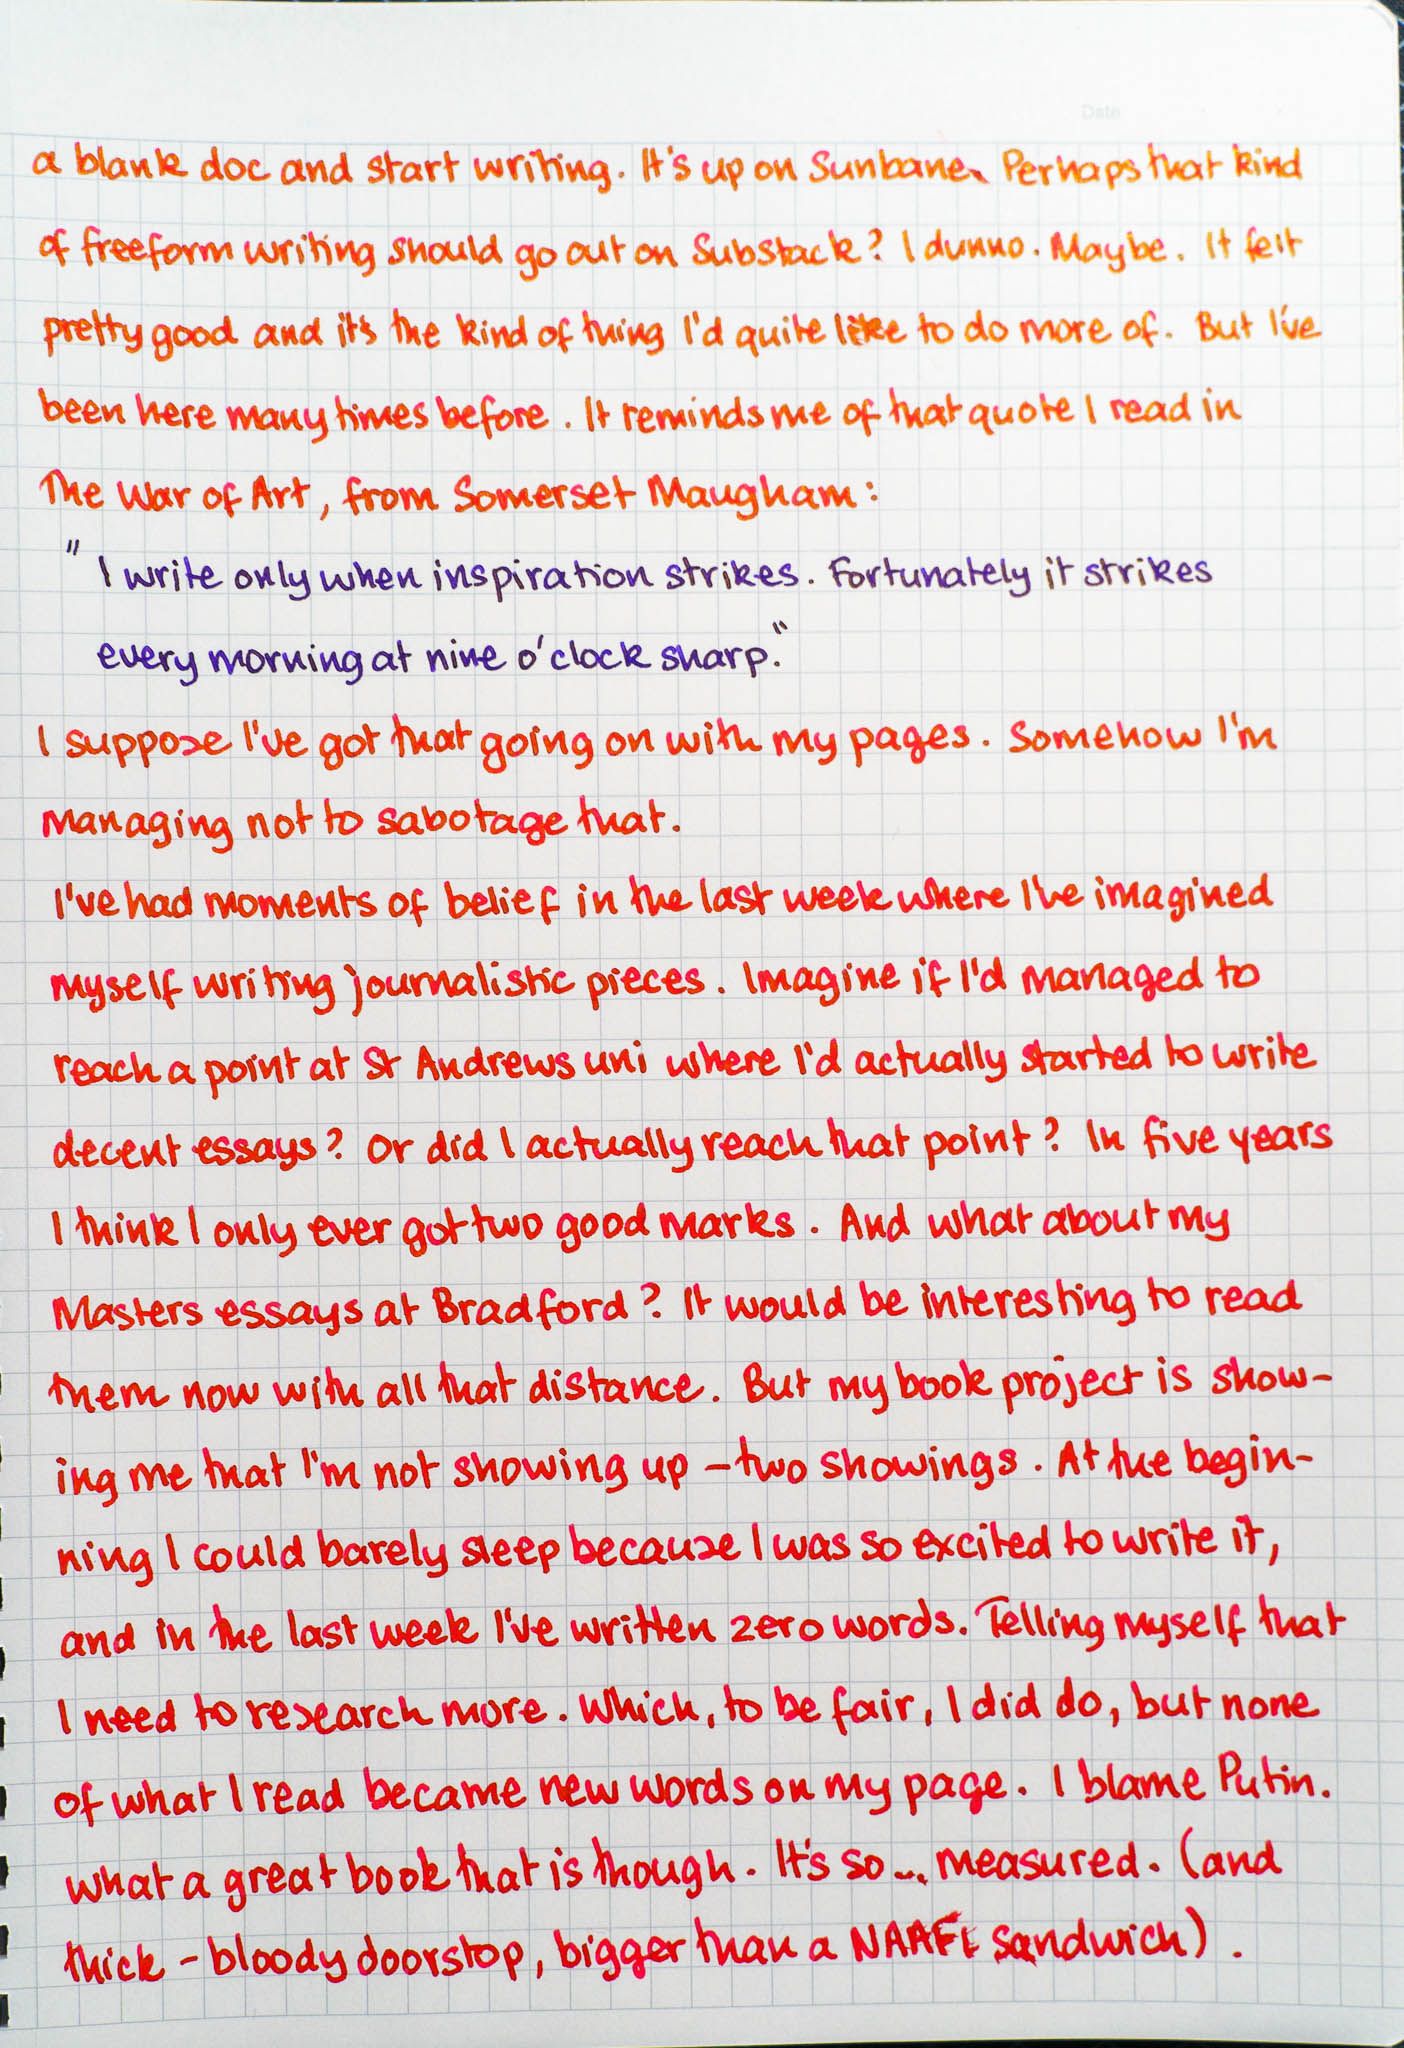 Date
a blank doc and start writing. It's up on Sunbane. Perhaps that kind
of freeform writing should go out on Substack? I dunno. Maybe. It felt
pretty good and it's the kind of thing I'd quite like to do more of. But I've
been here many times before. It reminds me of that quote I read in
The War of Art, from Somerset Maugham:
"I write only when inspiration strikes. Fortunately it strikes
every morning at nine o'clock sharp."
I suppose I've got that going on with my pages. Somehow I'm
managing not to sabotage that.
I've had moments of belief in the last week where I've imagined
myself writing journalistic pieces. Imagine if I'd managed to
reach a point at St Andrews uni where I'd actually started to write
decent essays? Or did I actually reach that point? In five years
I think I only ever got two good marks. And what about my
Masters essays at Bradford? It would be interesting to read
them now with all that distance. But my book project is show-
ing me that I'm not showing up – two showings. At the begin-
ning I could barely sleep because I was so excited to write it,
and in the last week I've written zero words. Telling myself that
I need to research more. Which, to be fair, I did do, but none
of what I read became new words on my page. I blame Putin.
What a great book that is though. It's so... measured. (and
thick – bloody doorstop, bigger than a NAAFI sandwich).